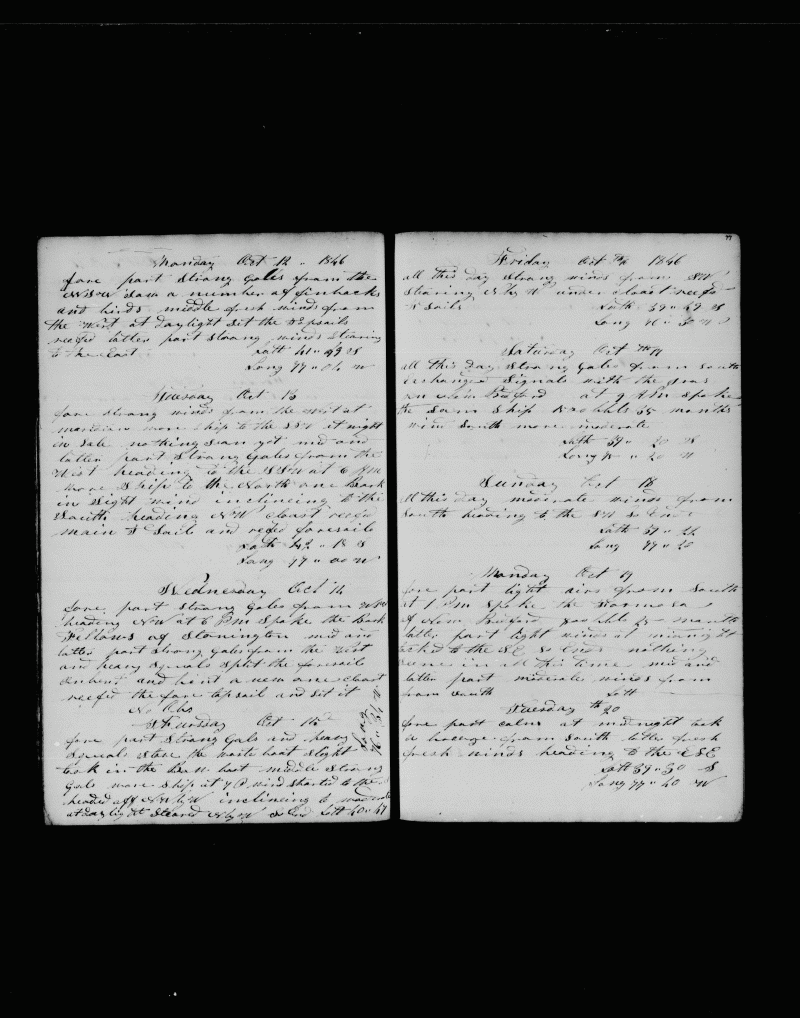 Monday Oct 12 " 1846
fore part Strong Gales from the
WSW Saw a number of finbacks
and birds middle fresh winds from
the West at daylight Set the topsails
reefed latter part Strong winds Stearing
to the East Latt 41 " 43 S
Long 77 " 04 W
Tuesday Oct 13
fore Strong winds from the West at
meridian wore Ship to the SSW at night
in Sale nothing Sean yet mid and
latter part Strong Gales from the
West heading to the SSW at 6 PM
wore Ship to the North one Bark
in Sight wind inclineing to the
South heading NW Cloast reefd
main T Sail and reefd foresail
Latt 42 " 18 S
Long 77 " 00 W
Wednesday Oct 14
fore part Strong Gales from WSW
heading NW at 6 PM Spoke the Bark
Fellows of Stonington mid and
latter part Strong Gales from the West
and heavy Squals Split the foresail
unbent and bent a new one cloast
reefed the fore topsail and Set it
No Obs
Thursday Oct 15
fore part Strong Gals and heavy
Squals Stove the waist boat Slight
took in the Bow boat middle Strong
Gals wore Ship at 7 wind Sharted to the
headed off NW by W inclineing to moderate
at daylight Steared N by W So End Latt 40 " 47
Long
77
Friday Oct 16 1846
all this day Strong winds from SW
Stearing N by W under cloast reefd
T Sails Latt 39 " 49 S
Long 76 " 30 W
Saturday Oct 17
all this day Strong Gales from South
Exchanged Signals with the
New Bedford at 9 AM Spoke
the Sam Ship 1500 bbls 35 months
wind South more moderate
Latt 39 " 20 S
Long " 20 W
Sunday Oct 18
all this day moderate winds from
South heading to the SW So End
Latt 39 " 22
Long 77 " 20
Monday Oct 19
fore part light airs from South
at 1 PM Spoke the Formosa
of New Bedford bbls months
latter part light winds at midnight
tacked to the SE So Ends nothing
Seene in all this time mid and
latter part moderate winds from
from South Latt
Tuesday th 20
fore part calm at midnight took
a breeze from South latter fresh
fresh winds heading to the ESE
Latt 39 " 30 S
Long 77 " 40 W